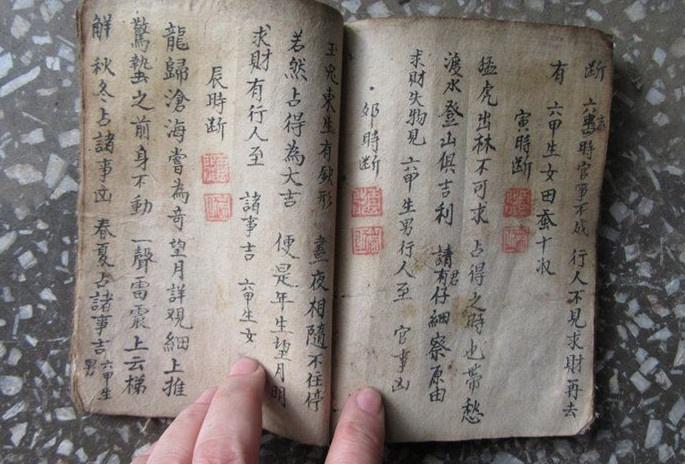 断 六畜時官事不成 行人不見求財再去
有 六甲生女田蚕十收
寅時断
猛虎出林不可求 占得之時也帶愁
渡水登山俱吉利 請君有仔細察原由
求財失物見 六甲生男行人至 官事凶
卯時断
玉兔東生有缺形 晝夜相隨不住停
若然占得為大吉 便是年生望月明
求財有行人至 諸事吉 六甲生女
辰時断
龍歸滄海嘗為奇 望月詳观細上推
驚蟄之前身不動 一聲雷震上云梯
解 秋冬占諸事凶 春夏占諸事吉 六甲生男